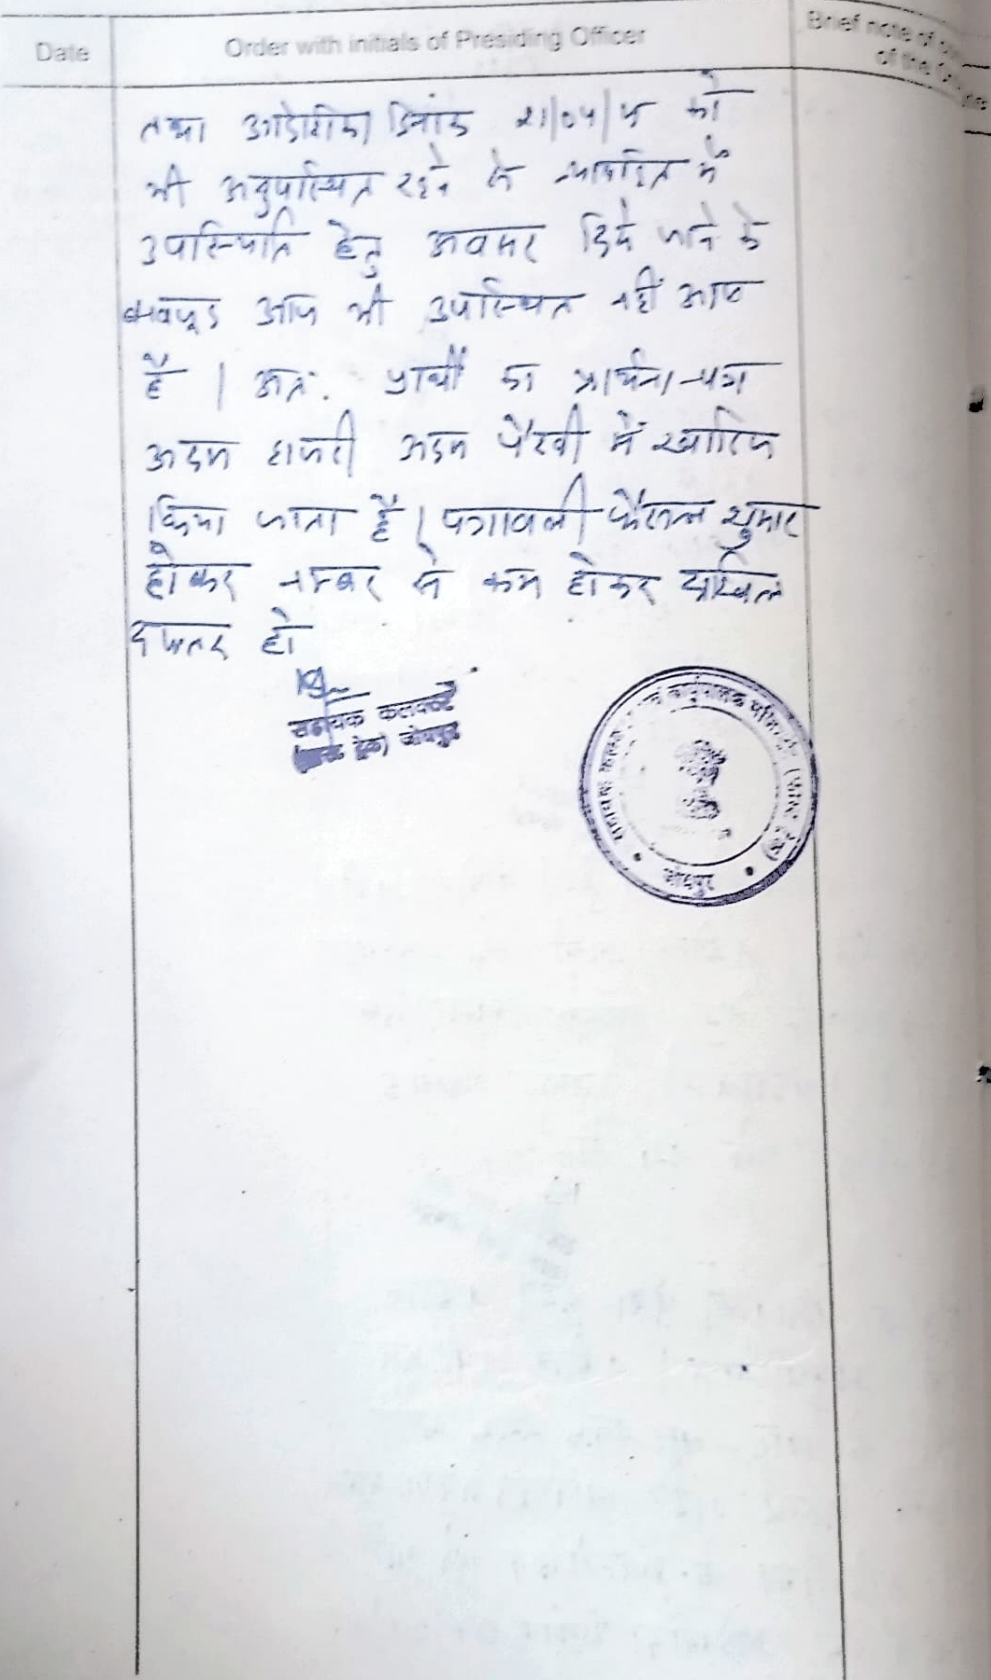 Date
Order with initials of Presiding Officer
Brief note of
of the
तथा आदेशिका दिनांक 21/04/ को
भी अनुपस्थित रहने से न्यायहित में
उपस्थिति हेतु अवसर दिये जाने के
बावजूद आज भी उपस्थित नहीं आए
है । अतः प्रार्थी का प्रार्थना-पत्र
अदम हाजरी अदम पैरवी में खारिज
किया जाता है । पत्रावली फैसल शुमार
होकर नम्बर से कम होकर दाखिल
दफ्तर हो
सहायक कलक्टर
(फास्ट ट्रेक) जोधपुर
सहायक कलक्टर एवं कार्यपालक मजिस्ट्रेट (फास्ट ट्रेक)
जोधपुर